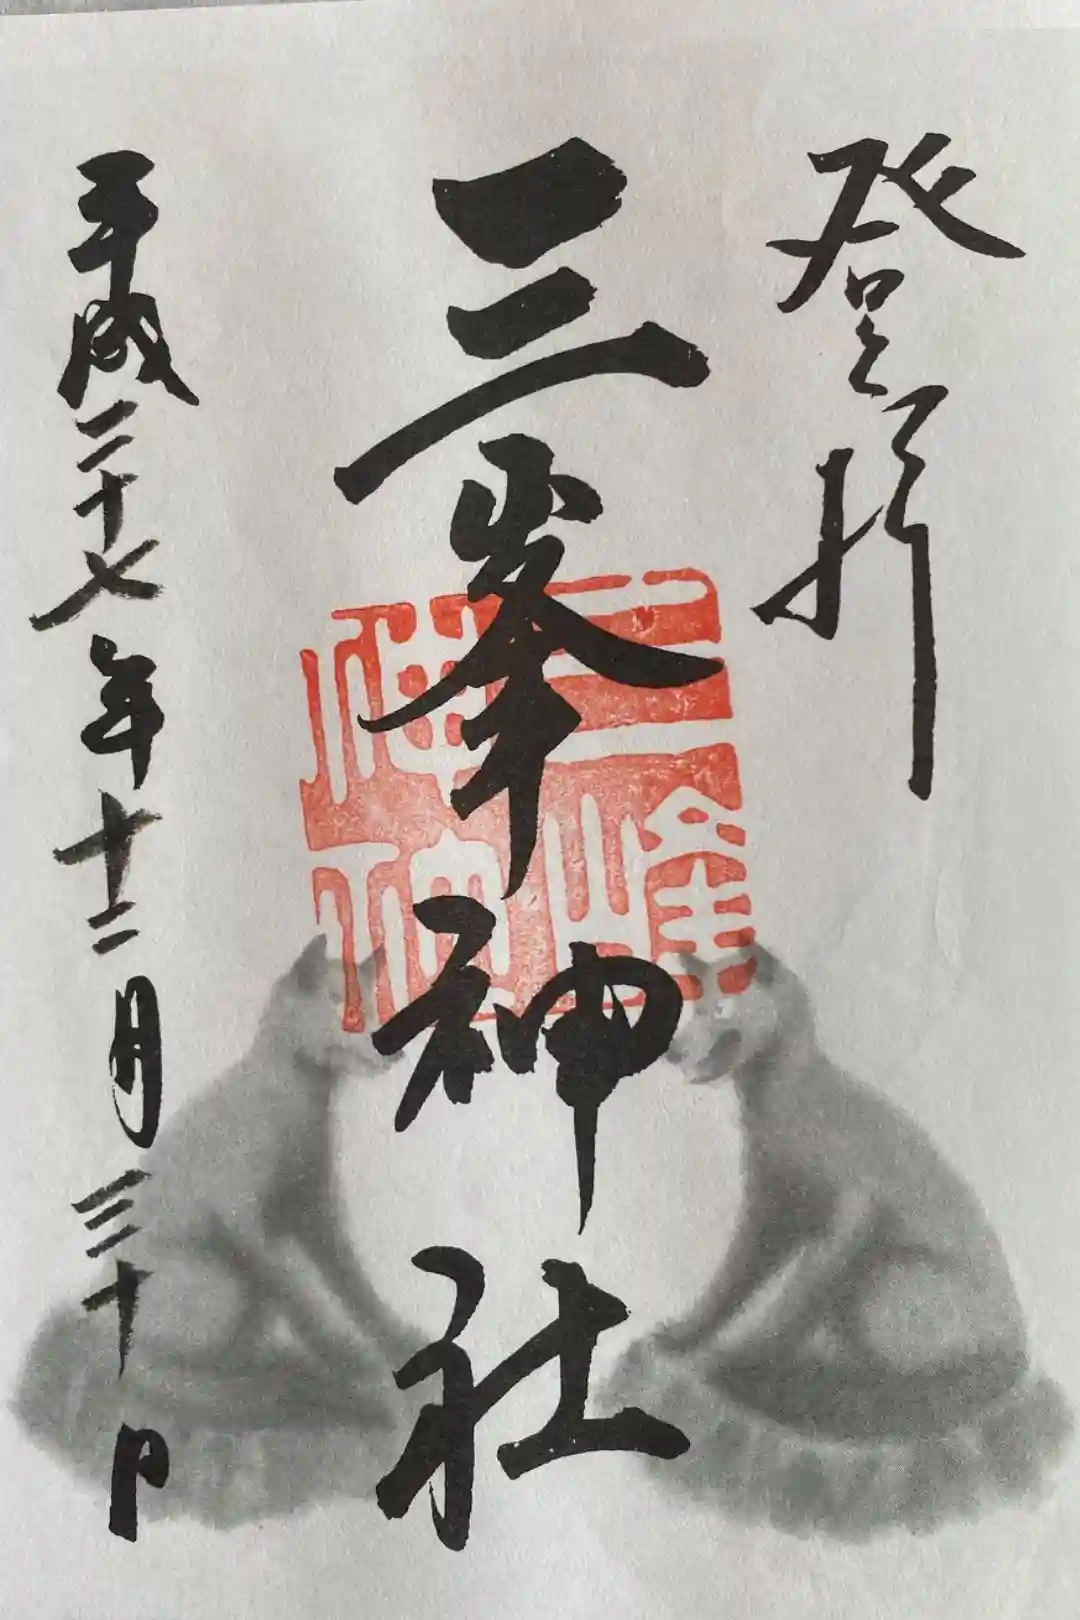 登拝
三峯神社
三峯神社
平成二十七年十二月三十日